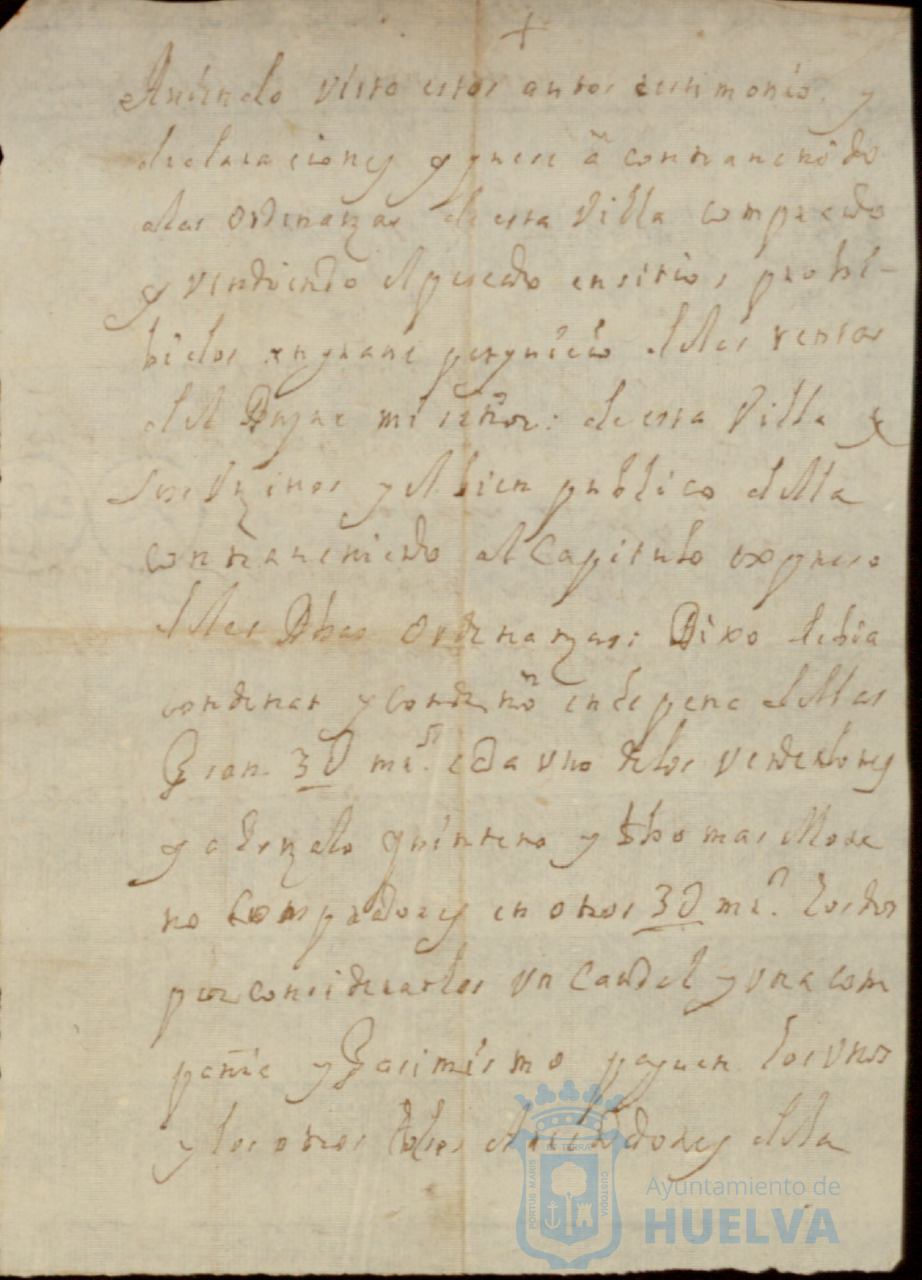 +
Auiendo visto estos autos testimonio y
declaraciones y que se à contrauenido
a las ordenanzas de esta Villa comprado
y vendiendo el pescado en sitios prohi-
bidos en graue perjuicio de las rentas
del Duque mi señor: de esta Villa y
sus vezinos y el bien publico della
contraueniendo al Capitulo expreso
de las Dhas ordenanzas: Dixo debia
condenar y condenò en de pena dellas
30 mrs. cada vno de los vendedores
y a Gonzalo quintero y thomas More
no Compradores en otros 30 mrs. los dos
por considerarlos vn Caudal y vna com
pañia y asimismo paguen los vnos
y los otros a los Arrendadores della
PORTUS MARIS
ET TERRAE
CUSTODIA
Ayuntamiento de
HUELVA